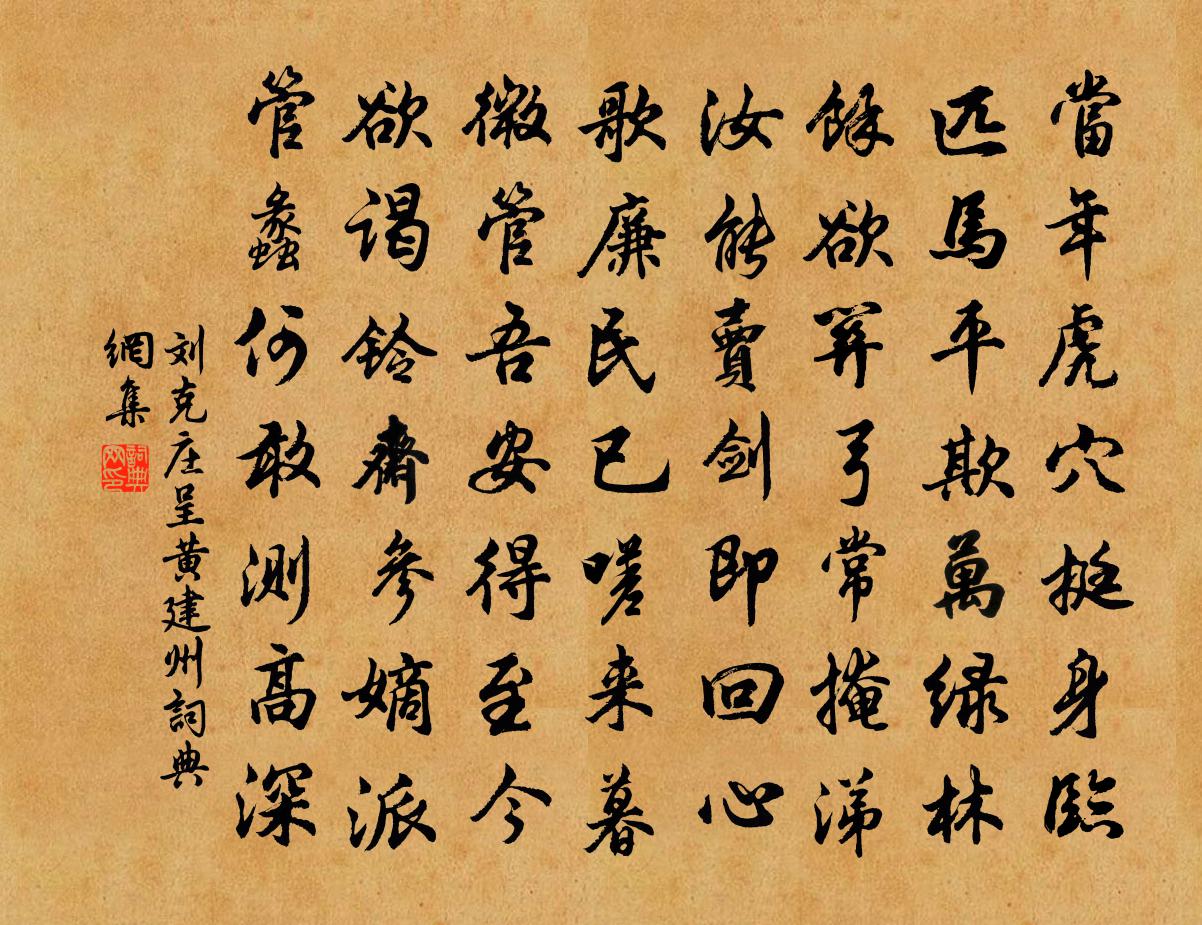 當年虎穴挺身臨
匹馬平欺萬綠林
餘欲關弓常掩涕
汝能賣劍即回心
歌廉民已嗟来暮
微管吾安得至今
欲謁鈴齋參嫡派
管蠡何敢測高深
刘克庄呈黄建州詞典
網集
詞典网印